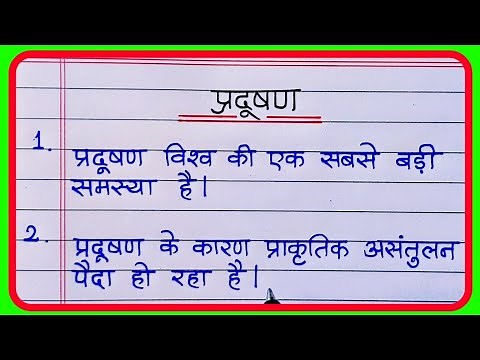 प्रदूषण
1. प्रदूषण विश्व की एक सबसे बड़ी
समस्या है।
2. प्रदूषण के कारण प्राकृतिक असंतुलन
पैदा हो रहा है।